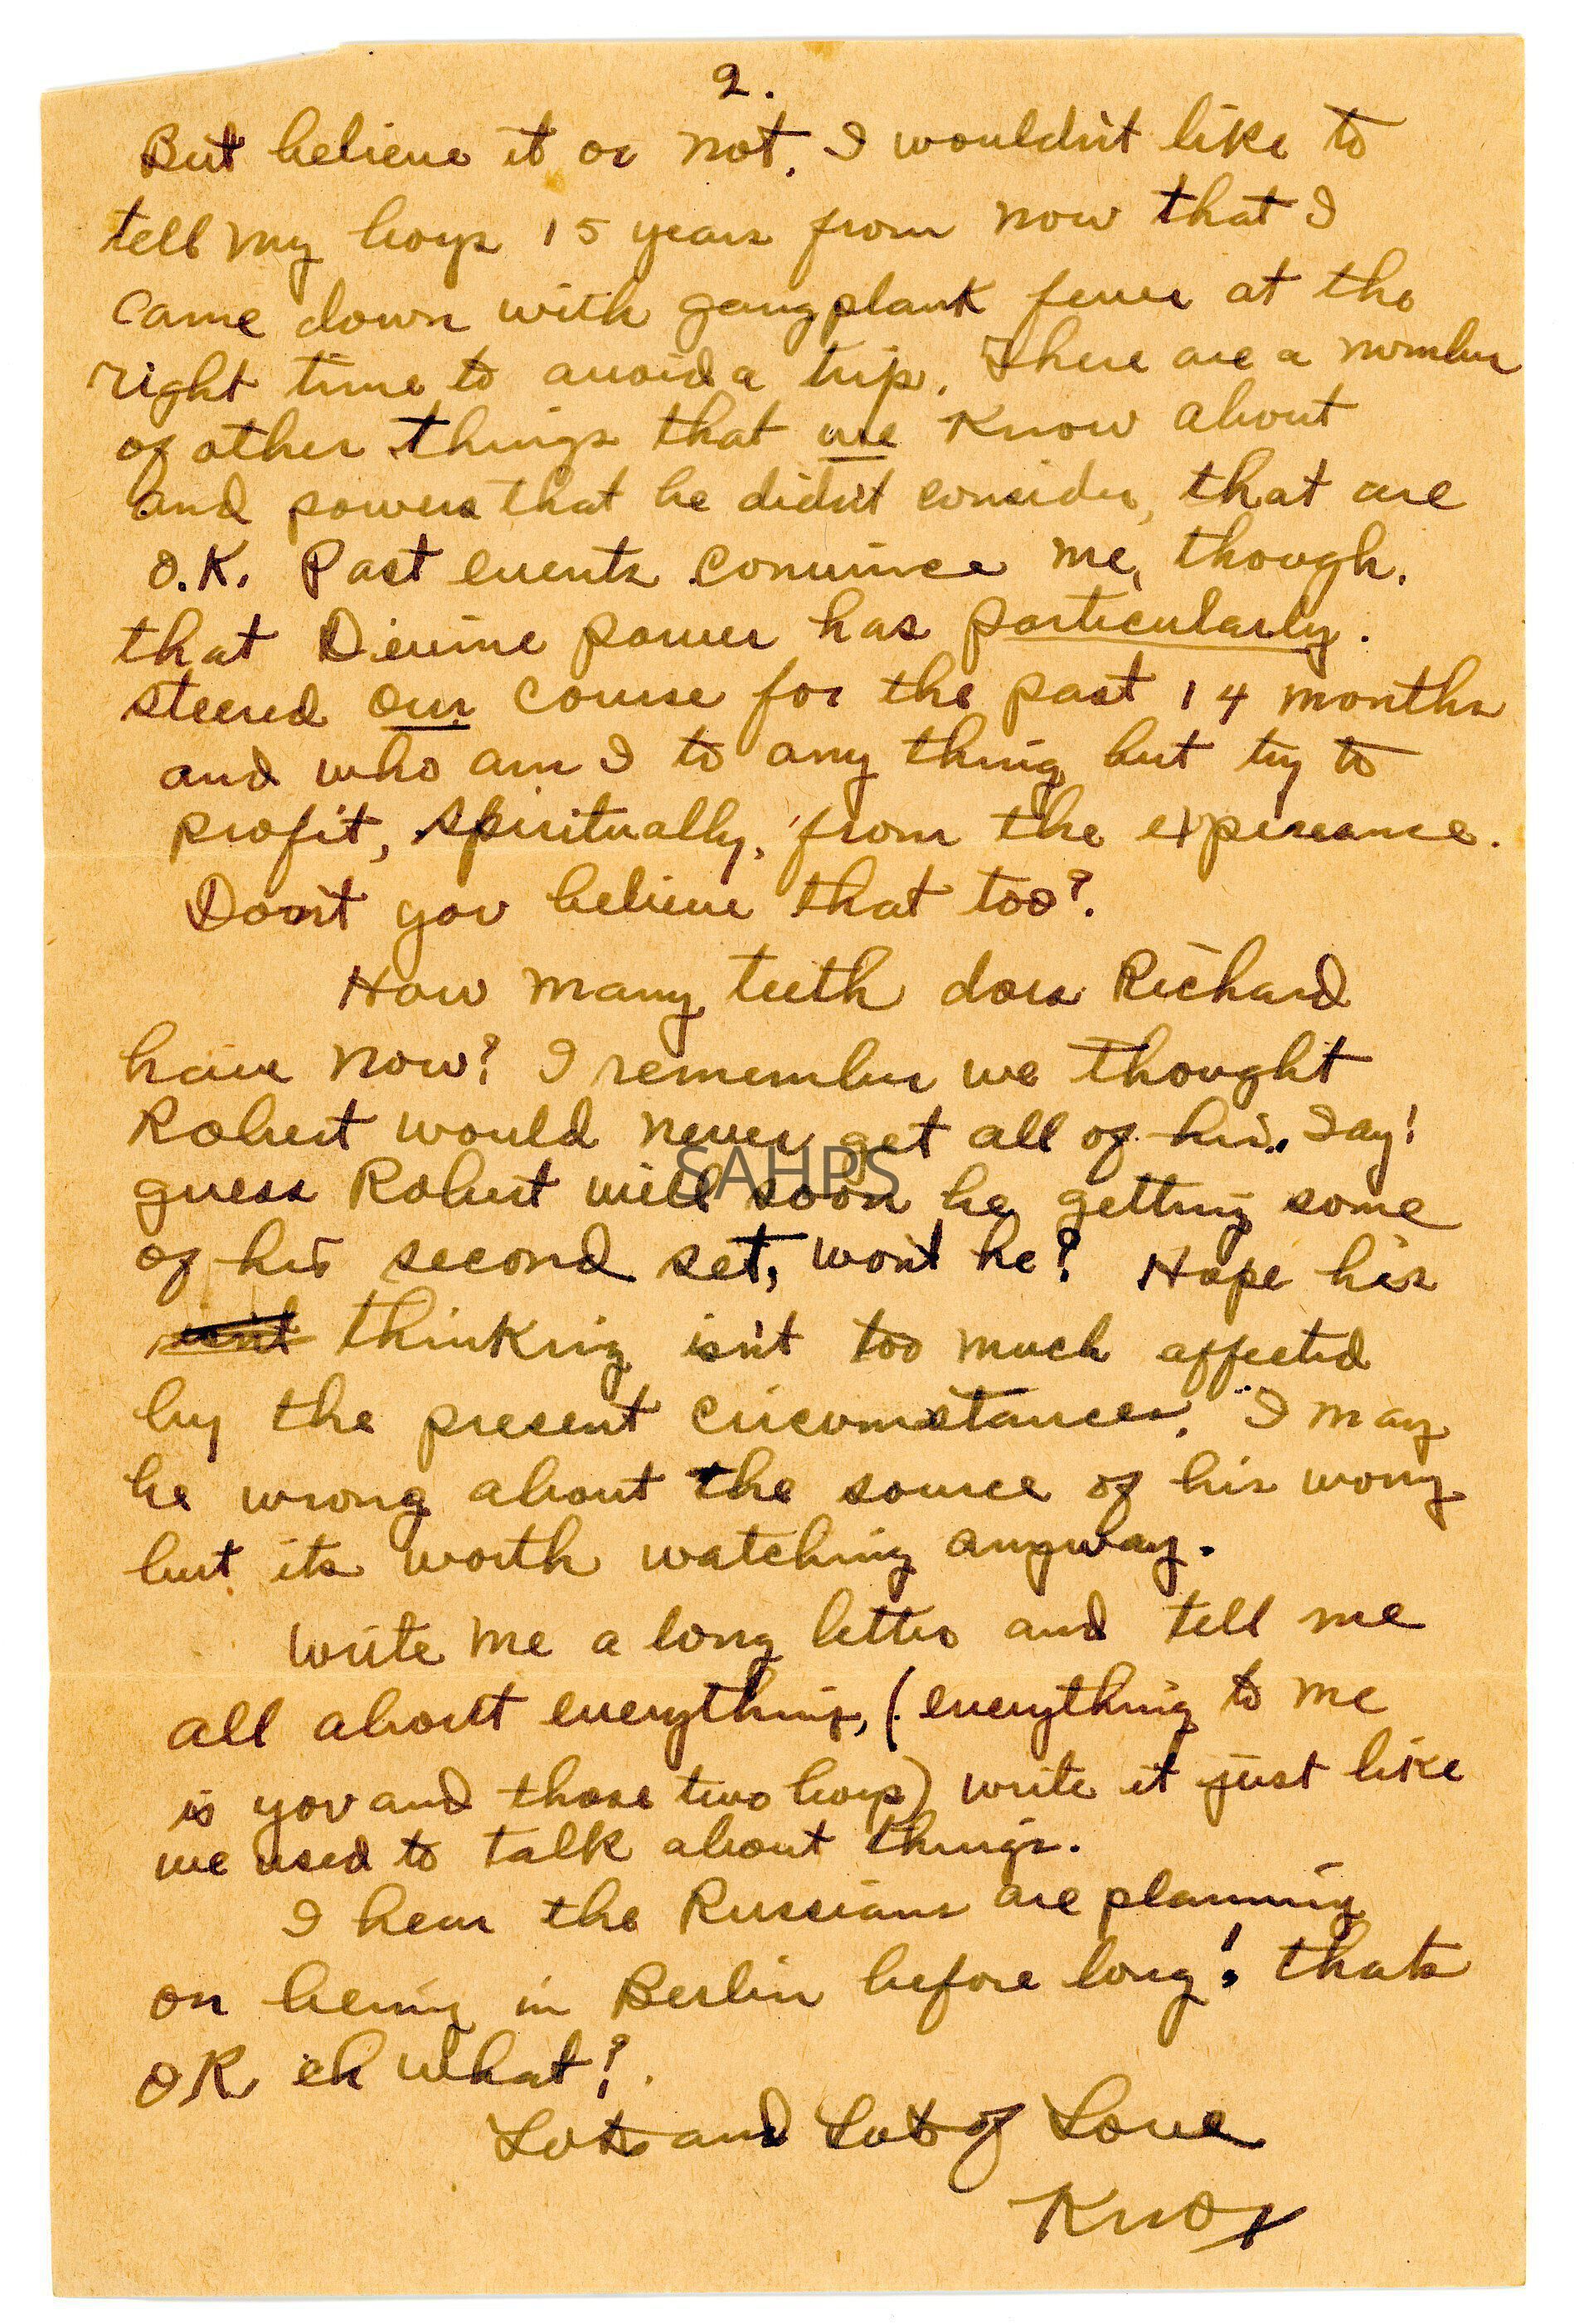 2.
But believe it or not, I wouldn't like to
tell my boys 15 years from now that I
came down with gangplank fever at the
right time to avoid a trip. There are a number
of other things that we know about
and powers that he didn't consider, that are
O.K. Past events convince me, though.
that Divine power has particularly.
steered our course for the past 14 months
and who am I to any thing but try to
profit, spiritually, from the expereance.
Don't you believe that too?
How many teeth does Richard
have now? I remember we thought
Robert would never get all of his. Say!
SAHPS
guess Robert will soon be getting some
of his second set, won't he? Hope his
isn't thinking isn't too much affected
by the present circumstances. I may
be wrong about the source of his worry
but its worth watching anyway.
Write me a long letter and tell me
all about everything, (everything to me
is you and those two boys) write it just like
we used to talk about things.
I hear the Russians are planning
on being in Berlin before long! thats
OK eh what?
Lots and Lots of Love
Knox